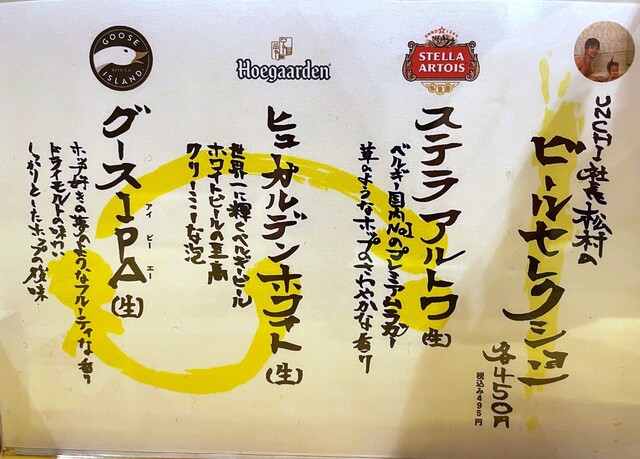 UNCHI社長松村の
ビールセレクション
各450円
税込み495円
STELLA
ARTOIS
ステラアルトワ(生)
ベルギー国内No1のプレミアムラガー
草のようなホップのさわやかな香り
Hoegaarden
ヒューガルデンホワイト(生)
世界一に輝くベルギービール
ホワイトビールの至高
クリーミーな泡
GOOSE
ISLAND
グースIPA(生)
アイピーエー
ホップ好きの夢のようなフルーティな香り
ドライモルトの味わい
しっかりとしたホップの後味